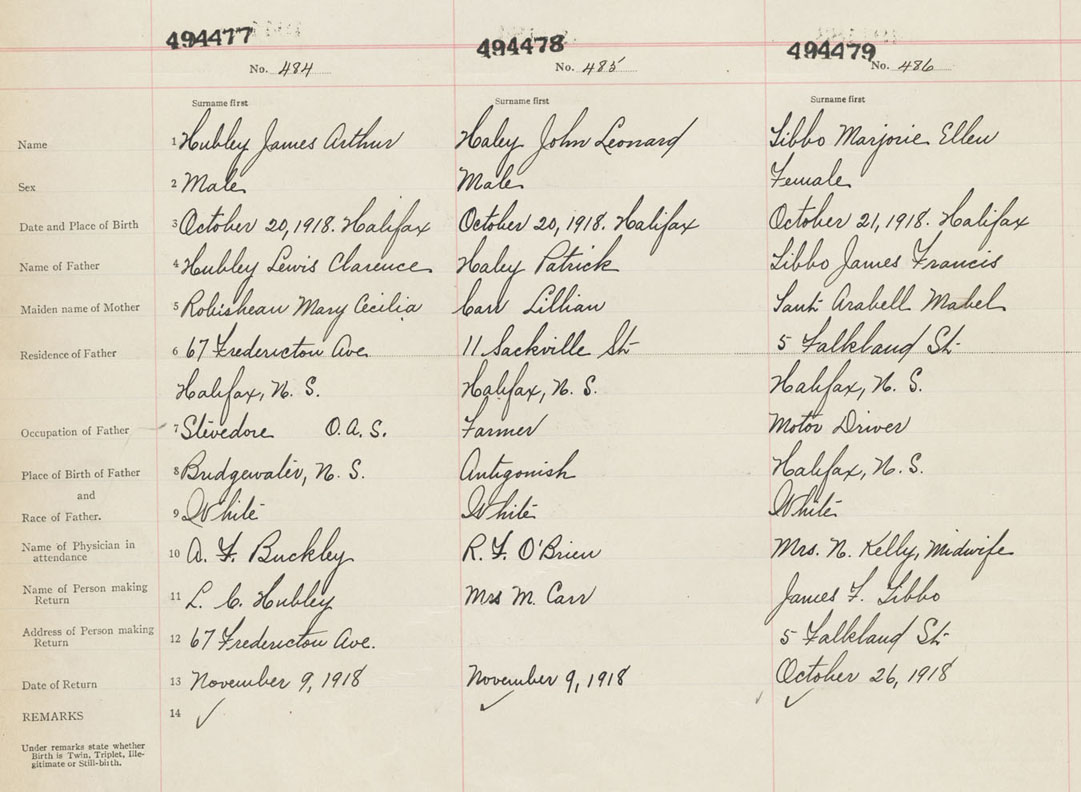 494477 494478 494479
No. 484 No. 485 No. 486
Surname first Surname first Surname first
Name 1 Hubley James Arthur Haley John Leonard Libbo Marjorie Ellen
Sex 2 Male Male Female
Date and Place of Birth 3 October 20, 1918. Halifax October 20, 1918. Halifax October 21, 1918. Halifax
Name of Father 4 Hubley Lewis Clarence Haley Patrick Libbo James Francis
Maiden name of Mother 5 Robisheau Mary Cecilia Carr Lillian Arabell Mabel
Residence of Father 6 67 Fredericton Ave 11 Sackville St 5 Falkland St
Halifax, N. S. Halifax, N. S. Halifax, N. S.
Occupation of Father 7 Stevedore O.A.S. Farmer Motor Driver
Place of Birth of Father 8 Bridgewater, N. S. Antigonish Halifax, N. S.
and
Race of Father. 9 White White White
Name of Physician in
attendance 10 A. F. Buckley R. F. O'Brien Mrs. N. Kelly, Midwife
Name of Person making
Return 11 L. C. Hubley Mrs M. Carr James F. Libbo
Address of Person making
Return 12 67 Fredericton Ave. 5 Falkland St
Date of Return 13 November 9, 1918 November 9, 1918 October 26, 1918
REMARKS 14 ✓ ✓ ✓
Under remarks state whether
Birth is Twin, Triplet, Ille-
gitimate or Still-birth.